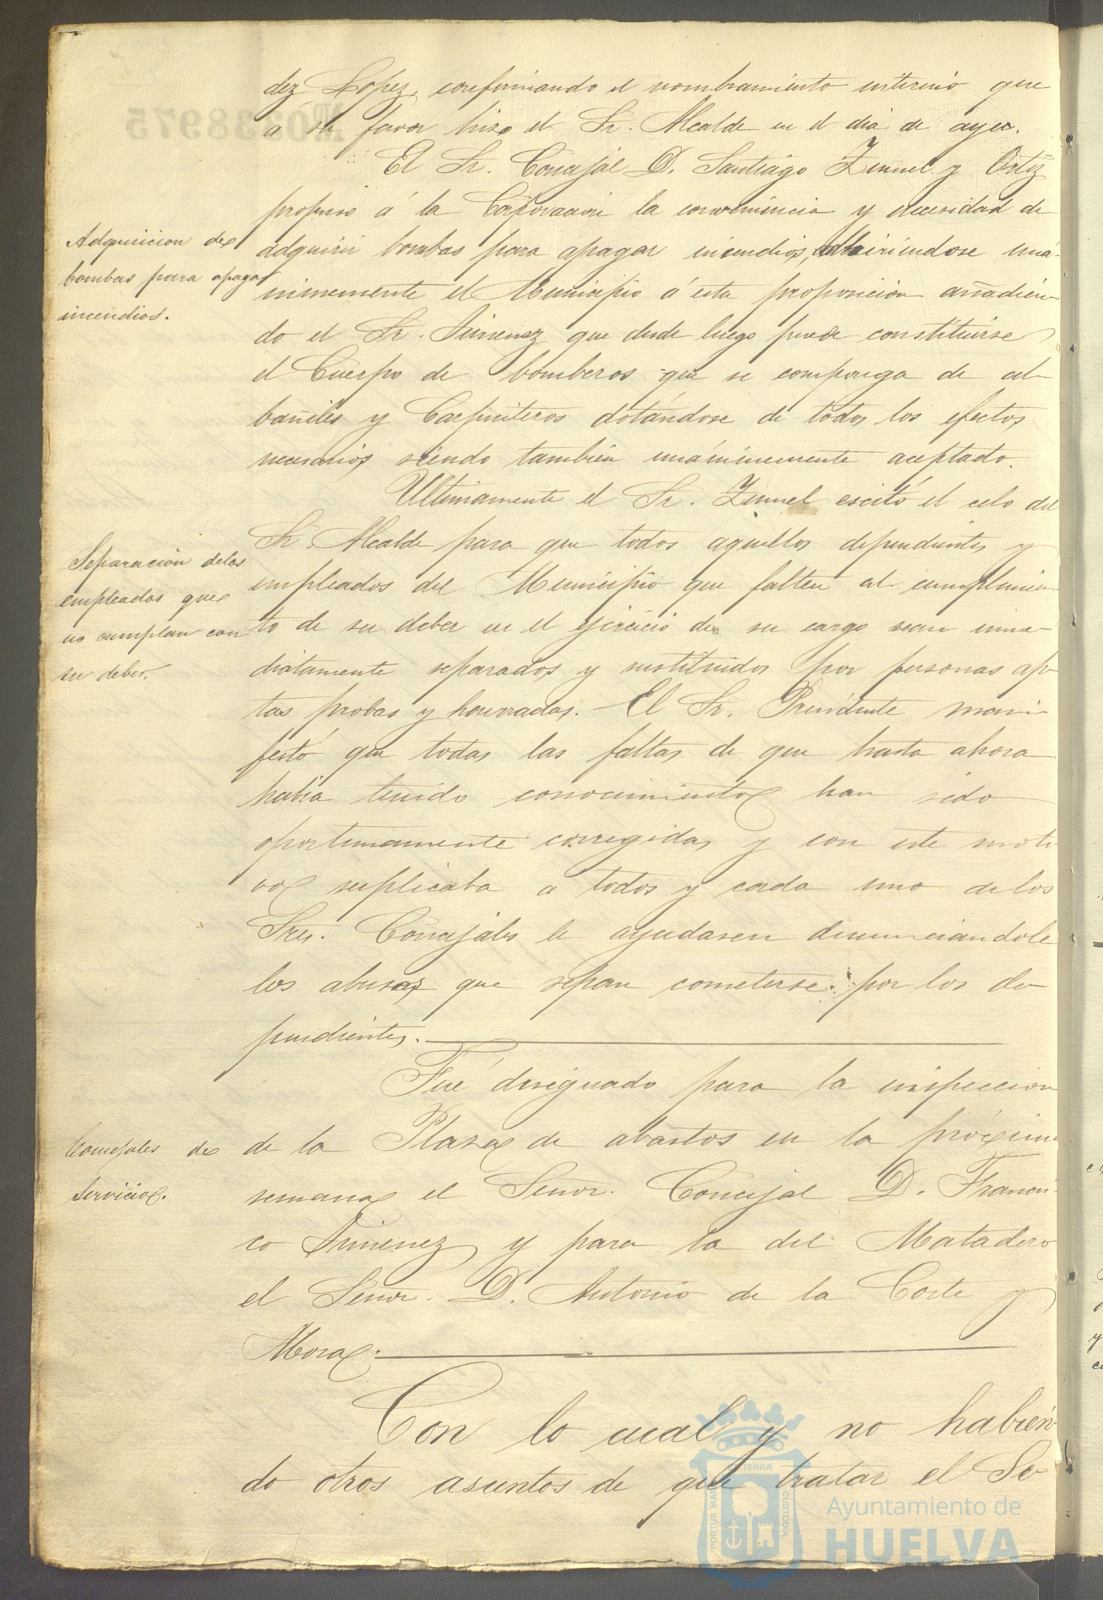 dez Lopez, confirmando el nombramiento interino que
a su favor hizo el Sr. Alcalde en el dia de ayer.
El Sr. Concejal D. Santiago Zinnel y Ortiz
propuso á la Corporacion la conveniencia y necesidad de
Adquisicion de
bombas para apagar
incendios.
adquirir bombas para apagar incendios, adhiriéndose uná-
nimemente el Municipio á esta proposicion añadien-
do el Sr. Jimenez que desde luego puede constituirse
el Cuerpo de bomberos que se componga de al-
bañiles y Carpinteros dotándose de todos los efectos
necesarios siendo tambien unánimemente aceptado.
Ultimamente el Sr. Zinnel escitó el celo del
Sr. Alcalde para que todos aquellos dependientes y
Separacion de los
empleados que
no cumplan con
su deber.
empleados del Municipio que falten al cumplimien-
to de su deber en el ejercicio de su cargo sean inme-
diatamente separados y sustituidos por personas ap-
tas probas y honrradas. El Sr. Presidente mani-
festó que todas las faltas de que hasta ahora
habia tenido conocimiento han sido
oportunamente corregidas y con este moti
vo suplicaba a todos y cada uno de los
Sres. Concejales le ayudasen denunciandole
los abusos que sepan cometerse por los de-
pendientes.
Fué designado para la inspeccion
Concejales de
Servicio.
de la Plaza de abastos en la próxima
semana el Señor Concejal D. Francis-
co Jimenez y para la del Matadero
el Señor D. Antonio de la Corte y
Mora.
Con lo cual y no habien-
do otros asuntos de que tratar el Se-
0238975
PORTUS MARIS ET TERRÆ CUSTODIA
Ayuntamiento de
HUELVA